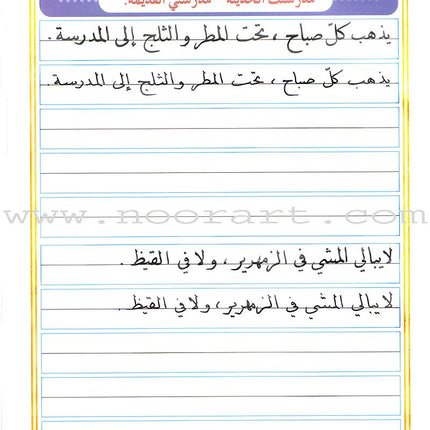 مدرستك الحديثة - مدرستي القديمة:
يذهب كلّ صباح ، تحت المطر والثلج إلى المدرسة .
يذهب كلّ صباح ، تحت المطر والثلج إلى المدرسة .
www.noorart.com
لا يبالي المشي في الزمهرير ، ولا في القيظ .
لا يبالي المشي في الزمهرير ، ولا في القيظ .